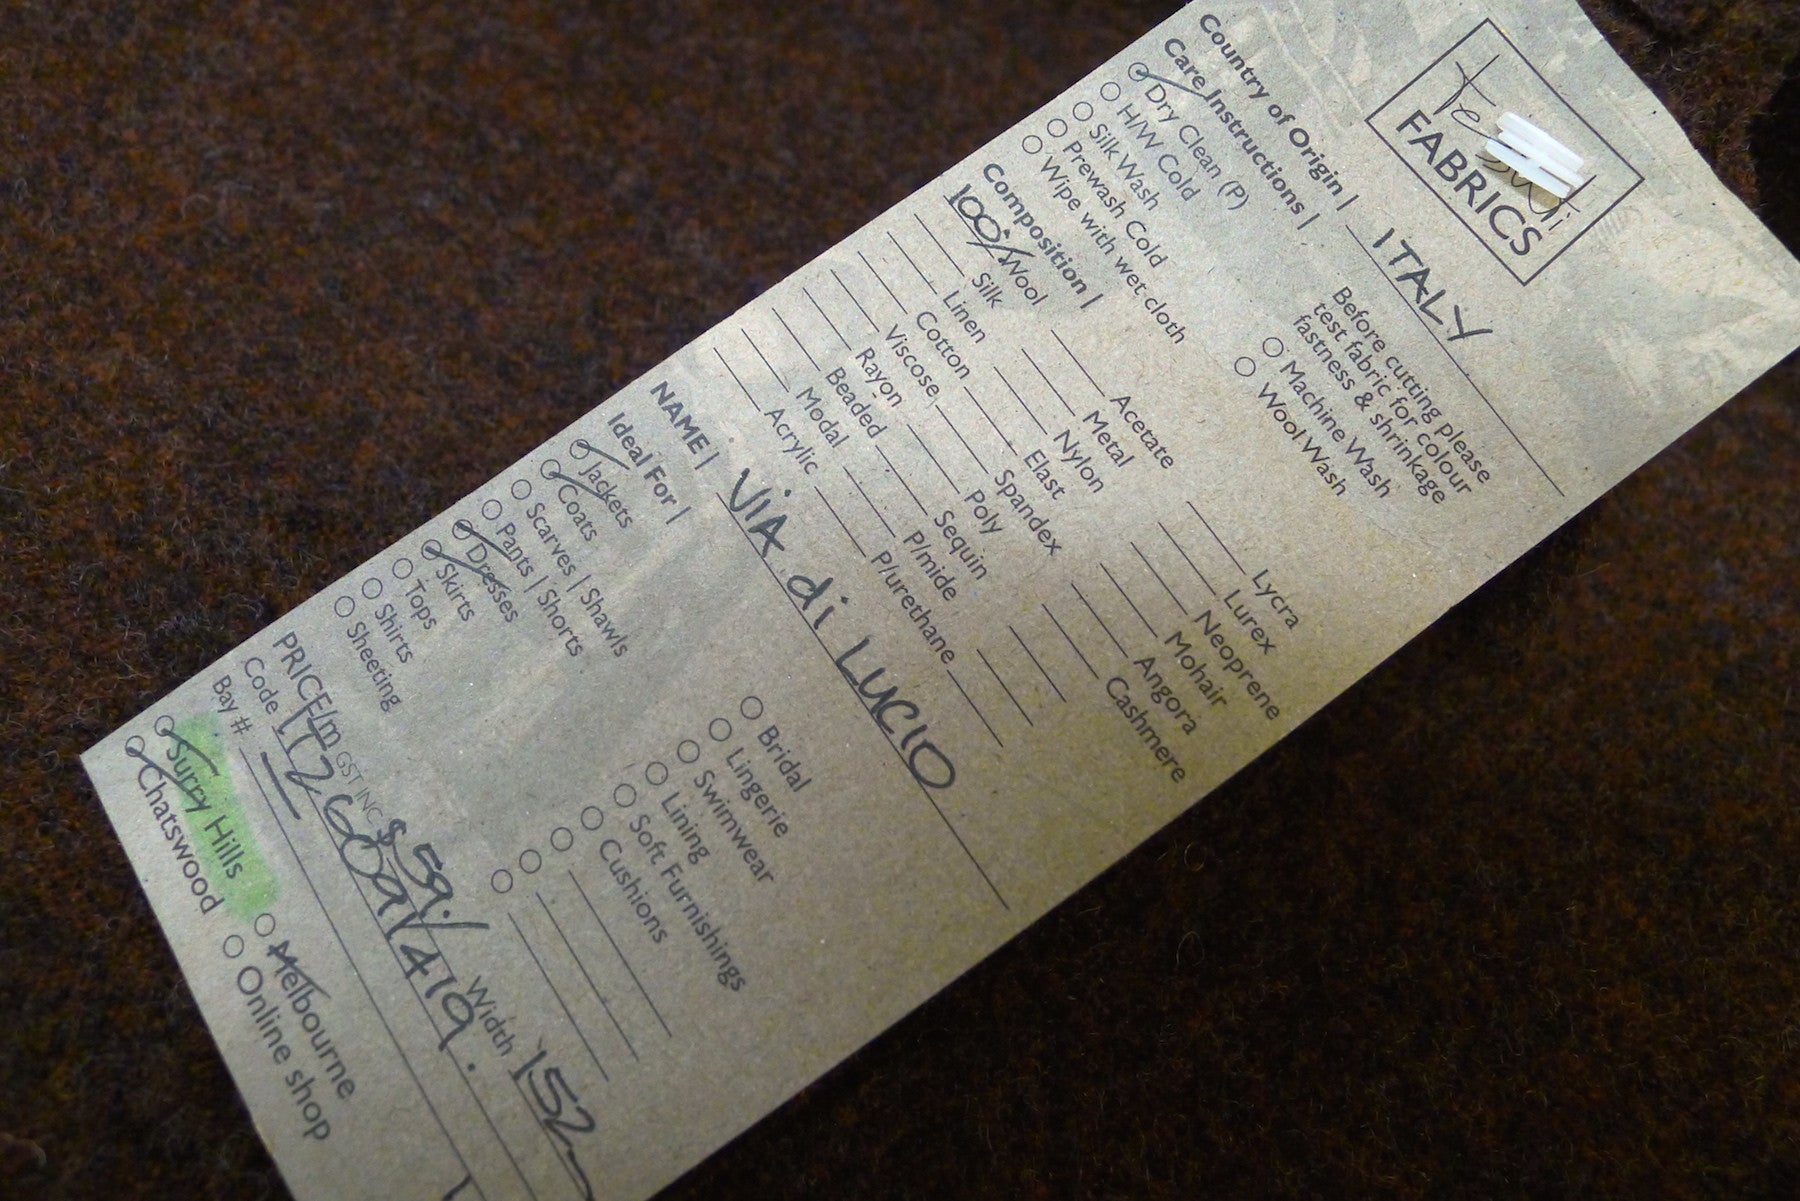 Tessuti
FABRICS
Country of Origin | ITALY
Care Instructions |
Dry Clean (P)
H/W Cold
Silk Wash
Prewash Cold
Wipe with wet cloth
Before cutting please
test fabric for colour
fastness & shrinkage
Machine Wash
Wool Wash
Composition |
100% Wool
Silk
Linen
Cotton
Viscose
Rayon
Beaded
Modal
Acrylic
Acetate
Metal
Nylon
Elast
Spandex
Poly
Sequin
P/mide
P/urethane
Lycra
Lurex
Neoprene
Mohair
Angora
Cashmere
NAME | VIA di LUCIO
Ideal For |
Jackets
Coats
Scarves | Shawls
Pants | Shorts
Dresses
Skirts
Tops
Shirts
Sheeting
Bridal
Lingerie
Swimwear
Lining
Soft Furnishings
Cushions
PRICE/m GST INC $59./ Width 152
Code
Bay #
Surry Hills
Chatswood
Melbourne
Online shop